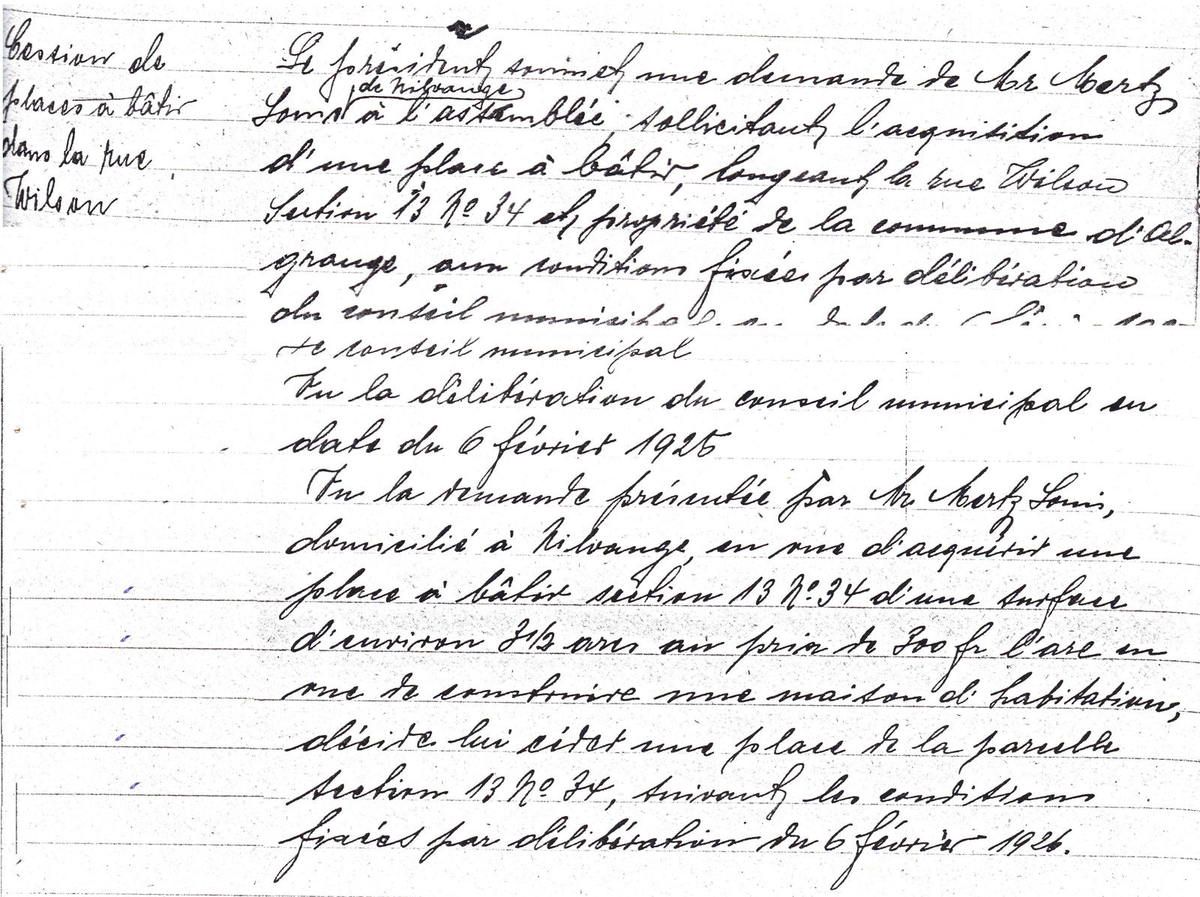 Cession de
places à bâtir
dans la rue
Wilson
Le président soumet une demande de Mr Mertz
de Nilvange
Louis à l'assemblée, sollicitant l'acquisition
d'une place à bâtir, longeant la rue Wilson
Section 13 No 34 et propriété de la commune d'Al-
grange, aux conditions fixées par délibération
du conseil municipal
Le conseil municipal
Vu la délibération du conseil municipal en
date du 6 février 1925
Vu la demande présentée par Mr Mertz Louis,
domicilié à Nilvange, en vue d'acquérir une
place à bâtir section 13 No 34 d'une surface
d'environ 3 1/2 ares au prix de 300 fr l'are en
vue de construire une maison d'habitation,
décide lui céder une place de la parcelle
section 13 No 34, suivant les conditions
fixées par délibération du 6 février 1926.